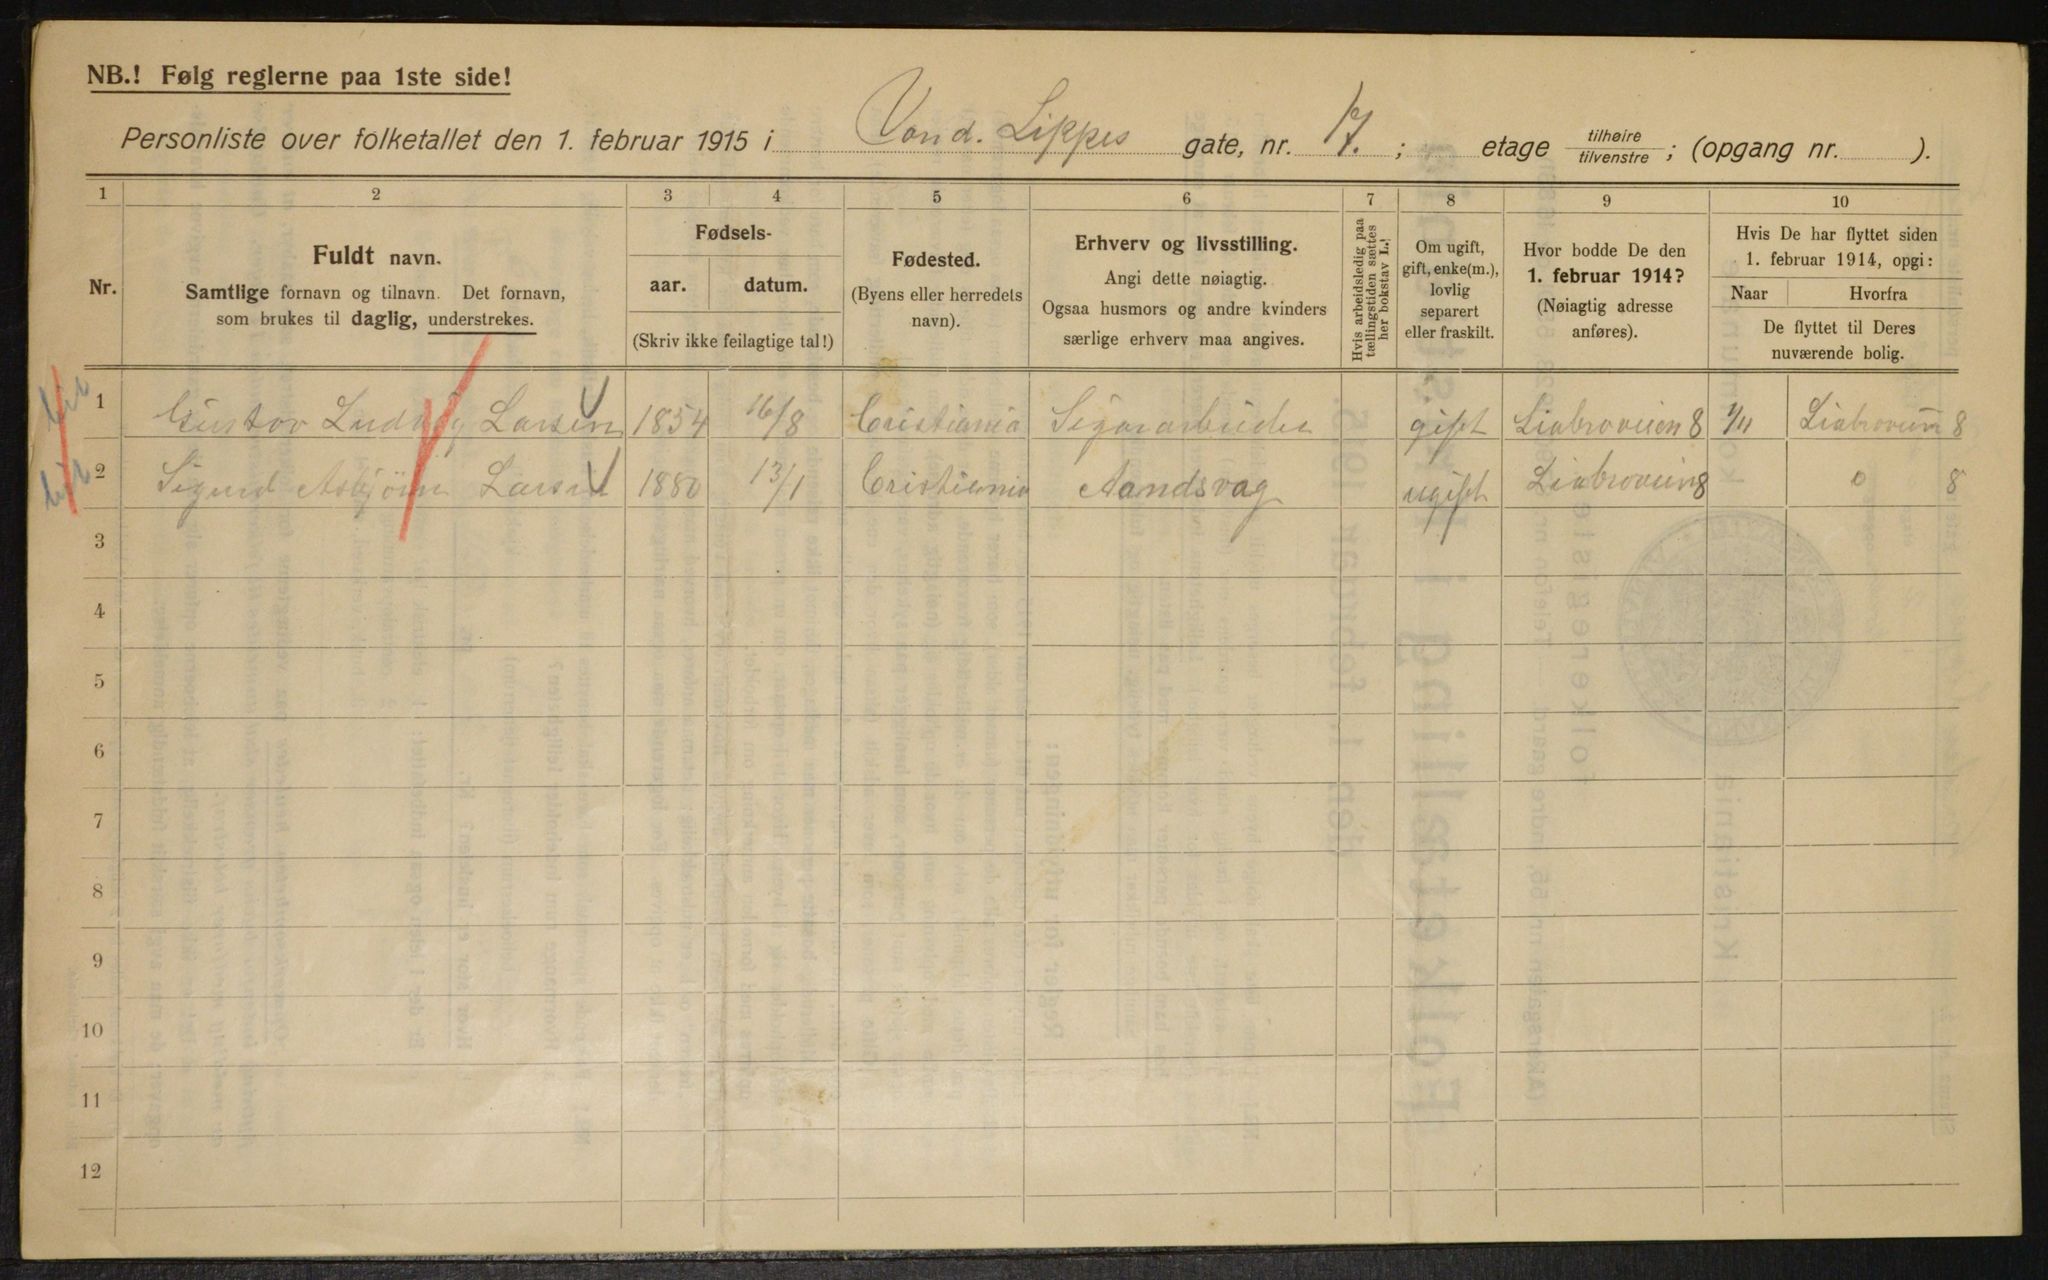 NB.! Følg reglerne paa 1ste side!
Personliste over folketallet den 1. februar 1915 i Vond. Lippes gate, nr. 17. ; etage tilhøire tilvenstre ; (opgang nr. ).
1 2 3 4 5 6 7 8 9 10
Nr.
Fuldt navn.
Samtlige fornavn og tilnavn. Det fornavn,
som brukes til daglig, understrekes.
Fødsels-
aar. datum.
(Skriv ikke feilagtige tal!)
Fødested.
(Byens eller herredets
navn).
Erhverv og livsstilling.
Angi dette nøiagtig.
Ogsaa husmors og andre kvinders
særlige erhverv maa angives.
Hvis arbeidsledig paa
tællingstiden sættes
her bokstav L.!
Om ugift,
gift, enke(m.),
lovlig
separert
eller fraskilt.
Hvor bodde De den
1. februar 1914?
(Nøiagtig adresse
anføres).
Hvis De har flyttet siden
1. februar 1914, opgi:
Naar Hvorfra
De flyttet til Deres
nuværende bolig.
1 Gustav Ludvig Larsen 1854 16/8 Cristiania Sigararbeider gift Liabroveien 8 1/11 Liabroveien 8
2 Sigurd Asbjörn Larsen 1880 13/1 Cristiania Aandsvag ugift Liabroveien 8 0 8
3
4
5
6
7
8
9
10
11
12